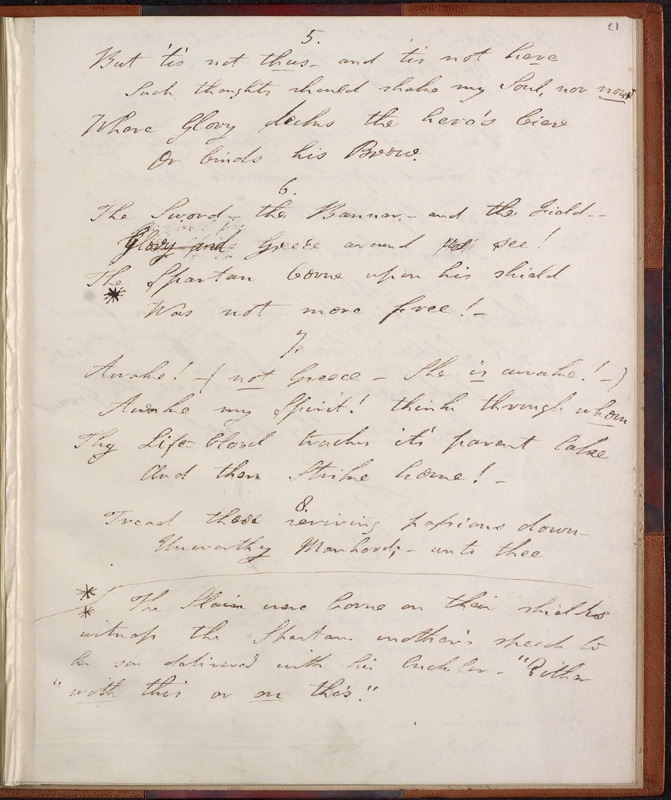 21
5.
But 'tis not thus - and 'tis not here
Such thoughts should shake my Soul, nor now
Where Glory decks the hero's bier
Or binds his Brow.
6.
The Sword - the Banner - and the Field -
Glory and Greece around us see!
The Spartan borne upon his shield
* Was not more free! -
7.
Awake! - (not Greece - She is awake! -)
Awake my Spirit! think through whom
Thy Life blood tracks its parent lake
And then Strike home! -
8.
Tread those reviving passions down
Unworthy Manhood; - unto thee
* The Slain were borne on their shields
* witness the Spartan mother's speech to
her son delivered with his buckler - "Either
"with this or on this."